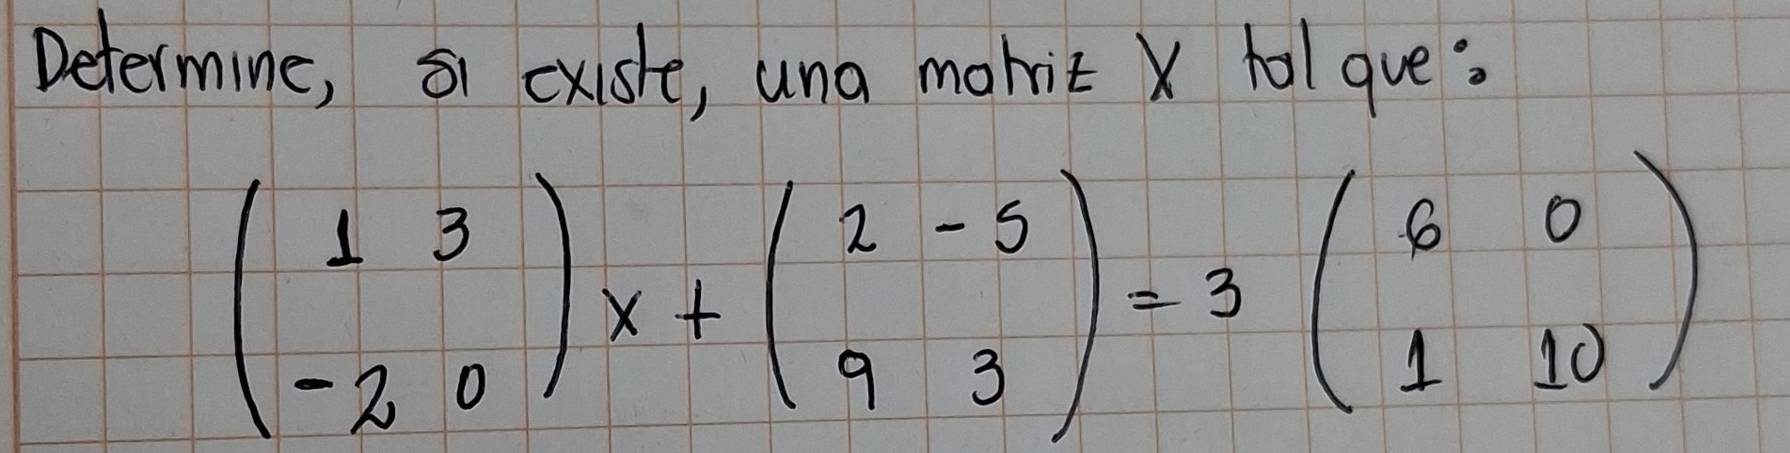 Determine, si existe, una matriz X tal que:
( 1 3 ) ( 2 -5 ) ( 6 0 )
x + = 3
( -2 0 ) ( 9 3 ) ( 1 10 )